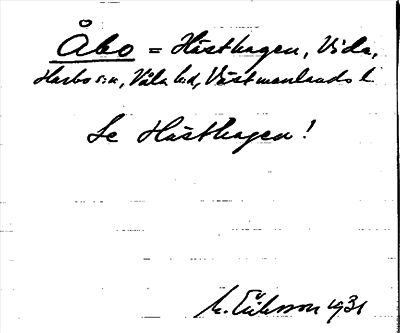 Åbo = Hästhagen, Vida,
Harbo s:n, Våla hd, Västmanlands l.
Se Hästhagen!
Eriksson 1931